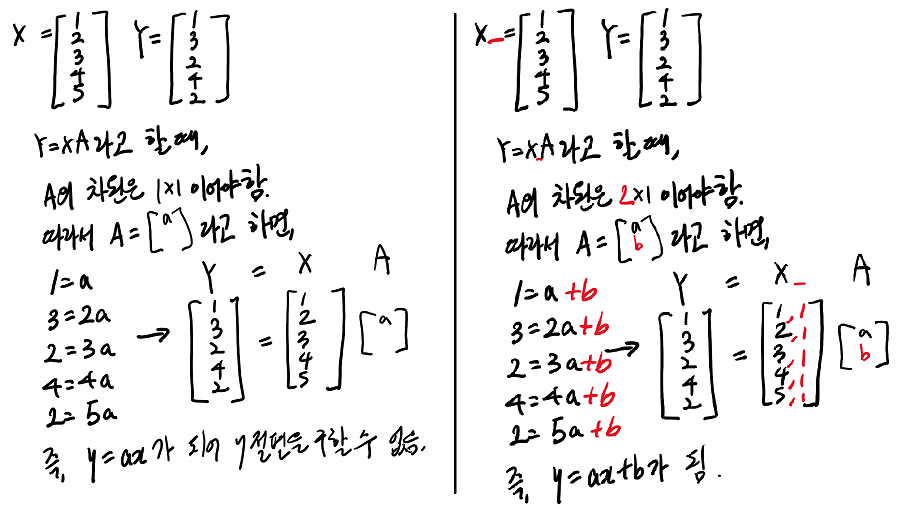 X = [1 2 3 4 5] Y = [1 3 2 4 2]
Y=XA라고 할때,
A의 차원은 1×1 이어야함.
따라서 A = [a] 라고 하면,
Y = X A
1=a
3=2a
2=3a
4=4a
2=5a
→ [1 3 2 4 2] = [1 2 3 4 5] [a]
즉, y=ax가 되어 y절편을 구할 수 없음.
X_ = [1 2 3 4 5] Y = [1 3 2 4 2]
Y=X_A라고 할때,
A의 차원은 2×1 이어야함.
따라서 A = [a b] 라고 하면,
Y = X_ A
1=a+b
3=2a+b
2=3a+b
4=4a+b
2=5a+b
→ [1 3 2 4 2] = [1,1 2,1 3,1 4,1 5,1] [a b]
즉, y=ax+b가 됨.